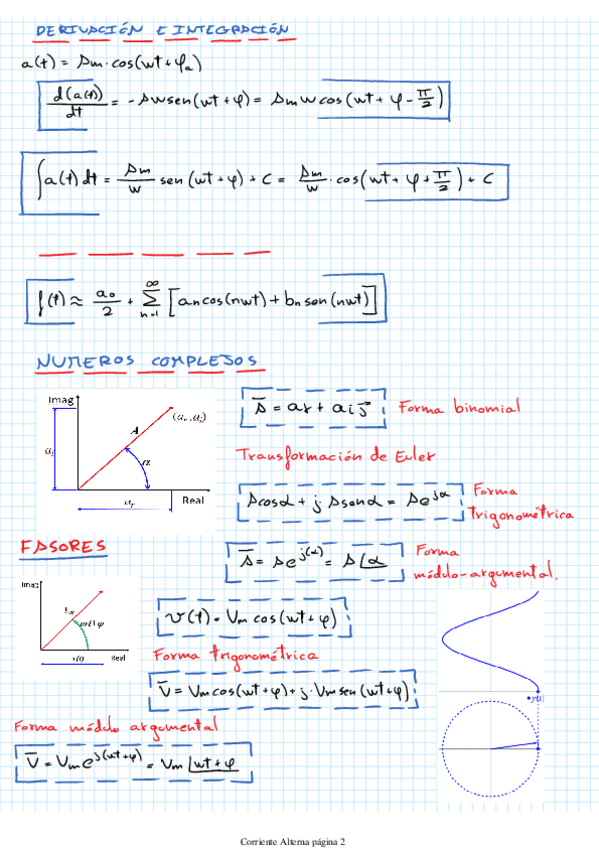 DERIVACIÓN E INTEGRACIÓN
a(t) = Am·cos(wt+φa)
d(a(t))/dt = -Awsen(wt+φ) = Amwcos(wt+φ-π/2)
∫a(t)dt = Am/w sen(wt+φ)+C = Am/w·cos(wt+φ+π/2)+C
f(t) ≈ a0/2 + ∞Σn=1 [ancos(nwt)+bnsen(nwt)]
NUMEROS COMPLEJOS
Imag
(ar, ai)
A
ai
α
ar
Real
A̅ = ar + aij
Forma binomial
Transformación de Euler
Acosα + j·Asenα = Ae^jα
Forma
trigonométrica
FASORES
A̅ = Ae^j(α) = A∠α
Forma
módulo-argumental.
Imag
Real
v(t)
v(t) = Vm cos(wt+φ)
Forma trigonométrica
V̅ = Vmcos(wt+φ)+j·Vmsen(wt+φ)
Forma módulo argumental
V̅ = Vme^j(wt+φ) = Vm∠wt+φ
Corriente Alterna página 2